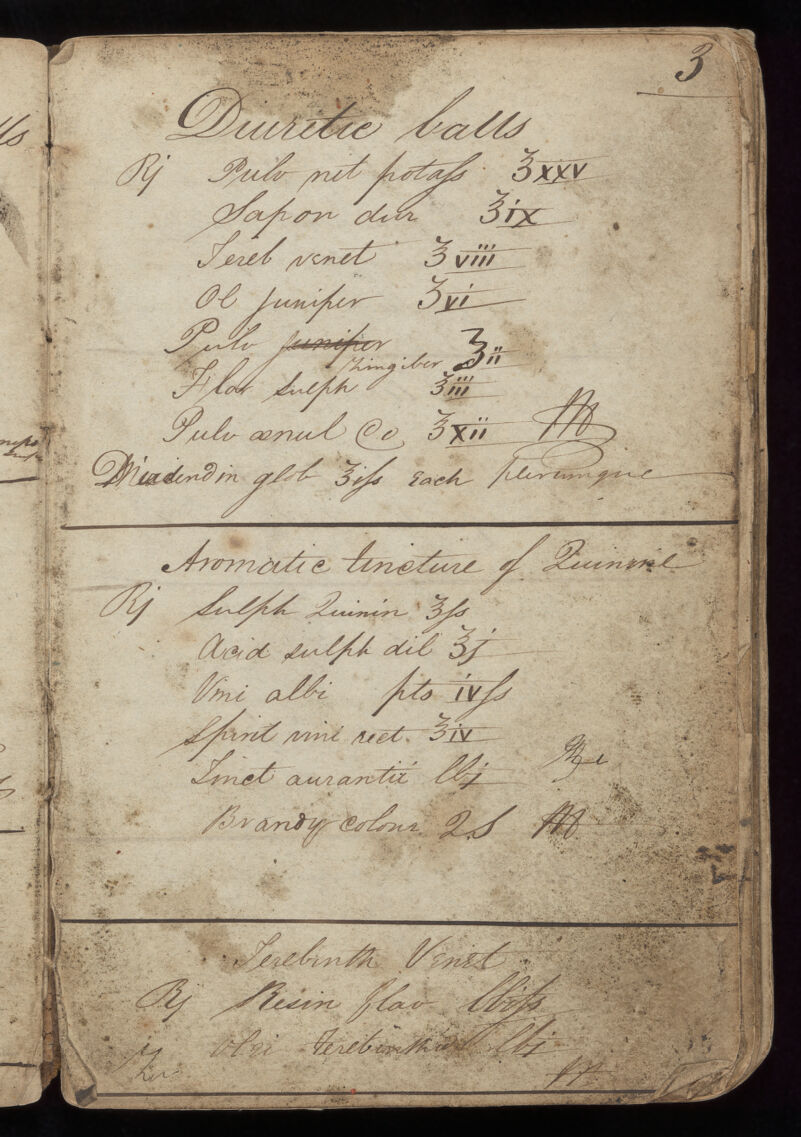 3
Diuretic balls
Rj Pulv nit potass ℥xxxv
Sapon dur ℥ix
Tereb venet ℥viii
Ol juniper ℥vi
Pulv juniper zingiber ℥ii
Flor sulph ℥iii
Pulv ænul Co ℥xii M
Dividend in glob ℥iss each plerumque
Aromatic tincture of Quinine
Rj Sulph Quinin ʒss
Acid sulph dil ʒj
Vini albi pts ivss
Spirit vini rect ℥iv
Tinct aurantii lbj
Brandy colour Q.S M
Terebinth Venet
Rj Resin flav
Olei Terebinthin lbj
M